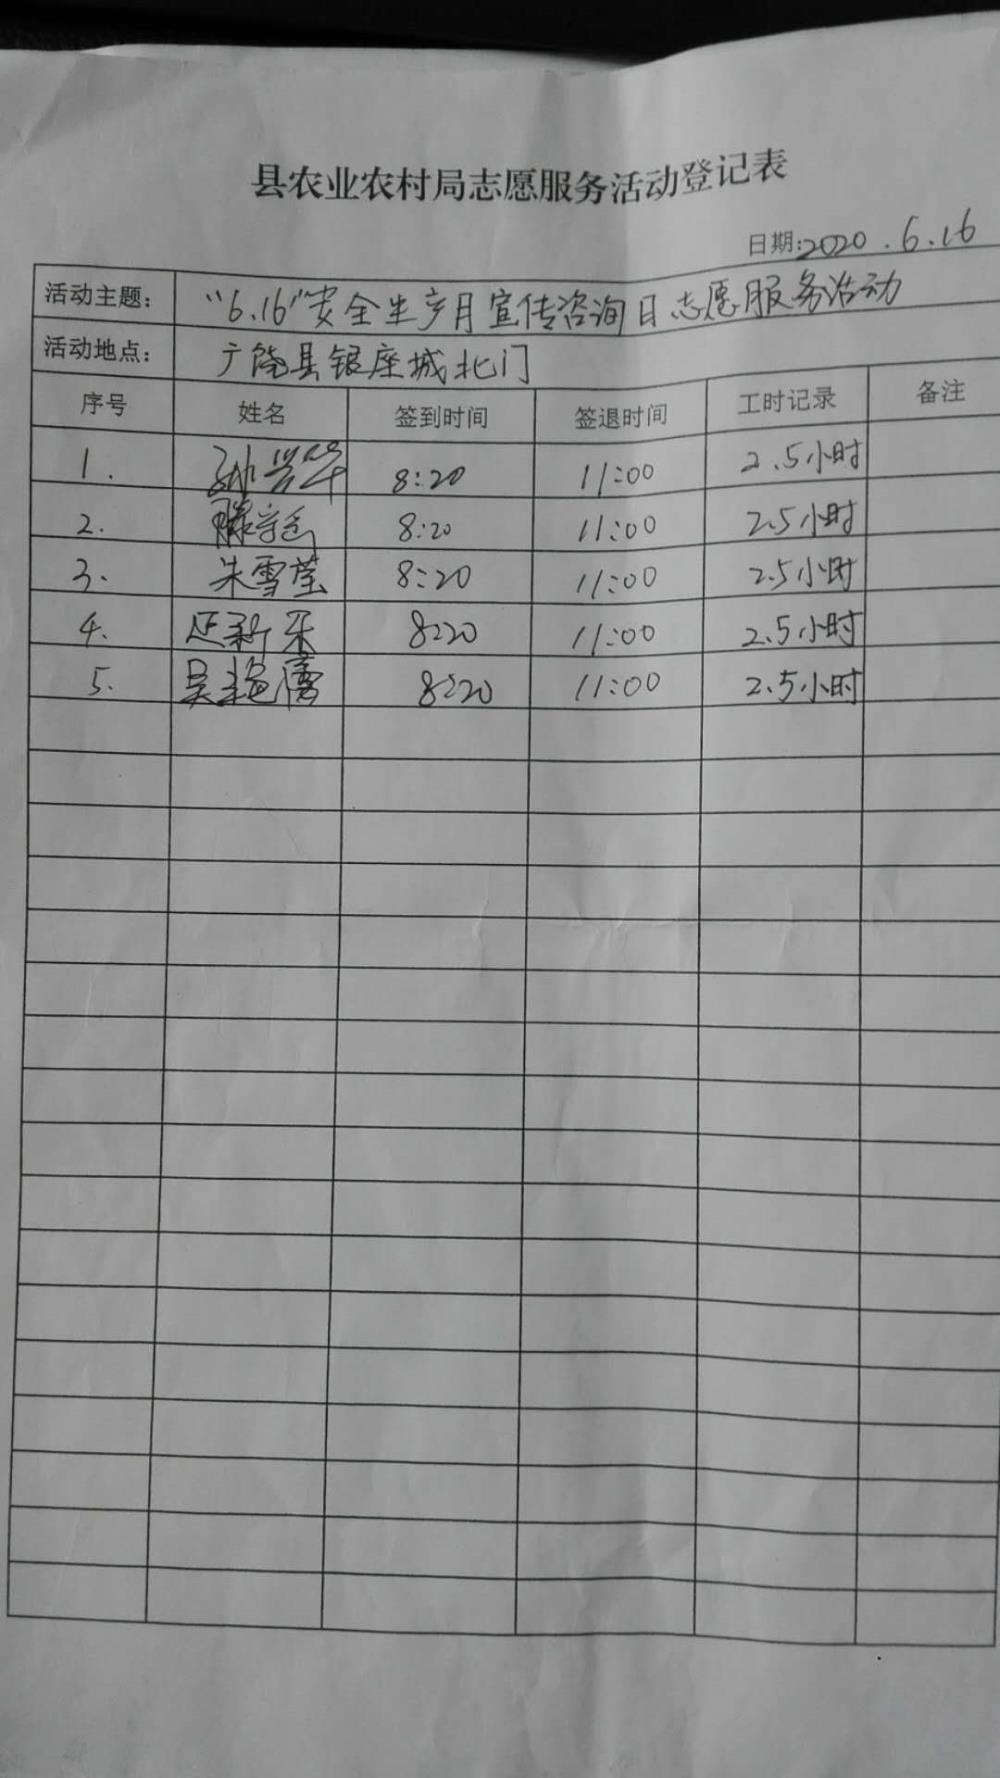 县农业农村局志愿服务活动登记表
日期:2020.6.16
活动主题: “6.16”安全生产月宣传咨询日志愿服务活动
活动地点: 广饶县银座城北门
序号 姓名 签到时间 签退时间 工时记录 备注
1. 孙兴华 8:20 11:00 2.5小时
2. 8:20 11:00 2.5小时
3. 朱雪莹 8:20 11:00 2.5小时
4. 8:20 11:00 2.5小时
5. 8:20 11:00 2.5小时